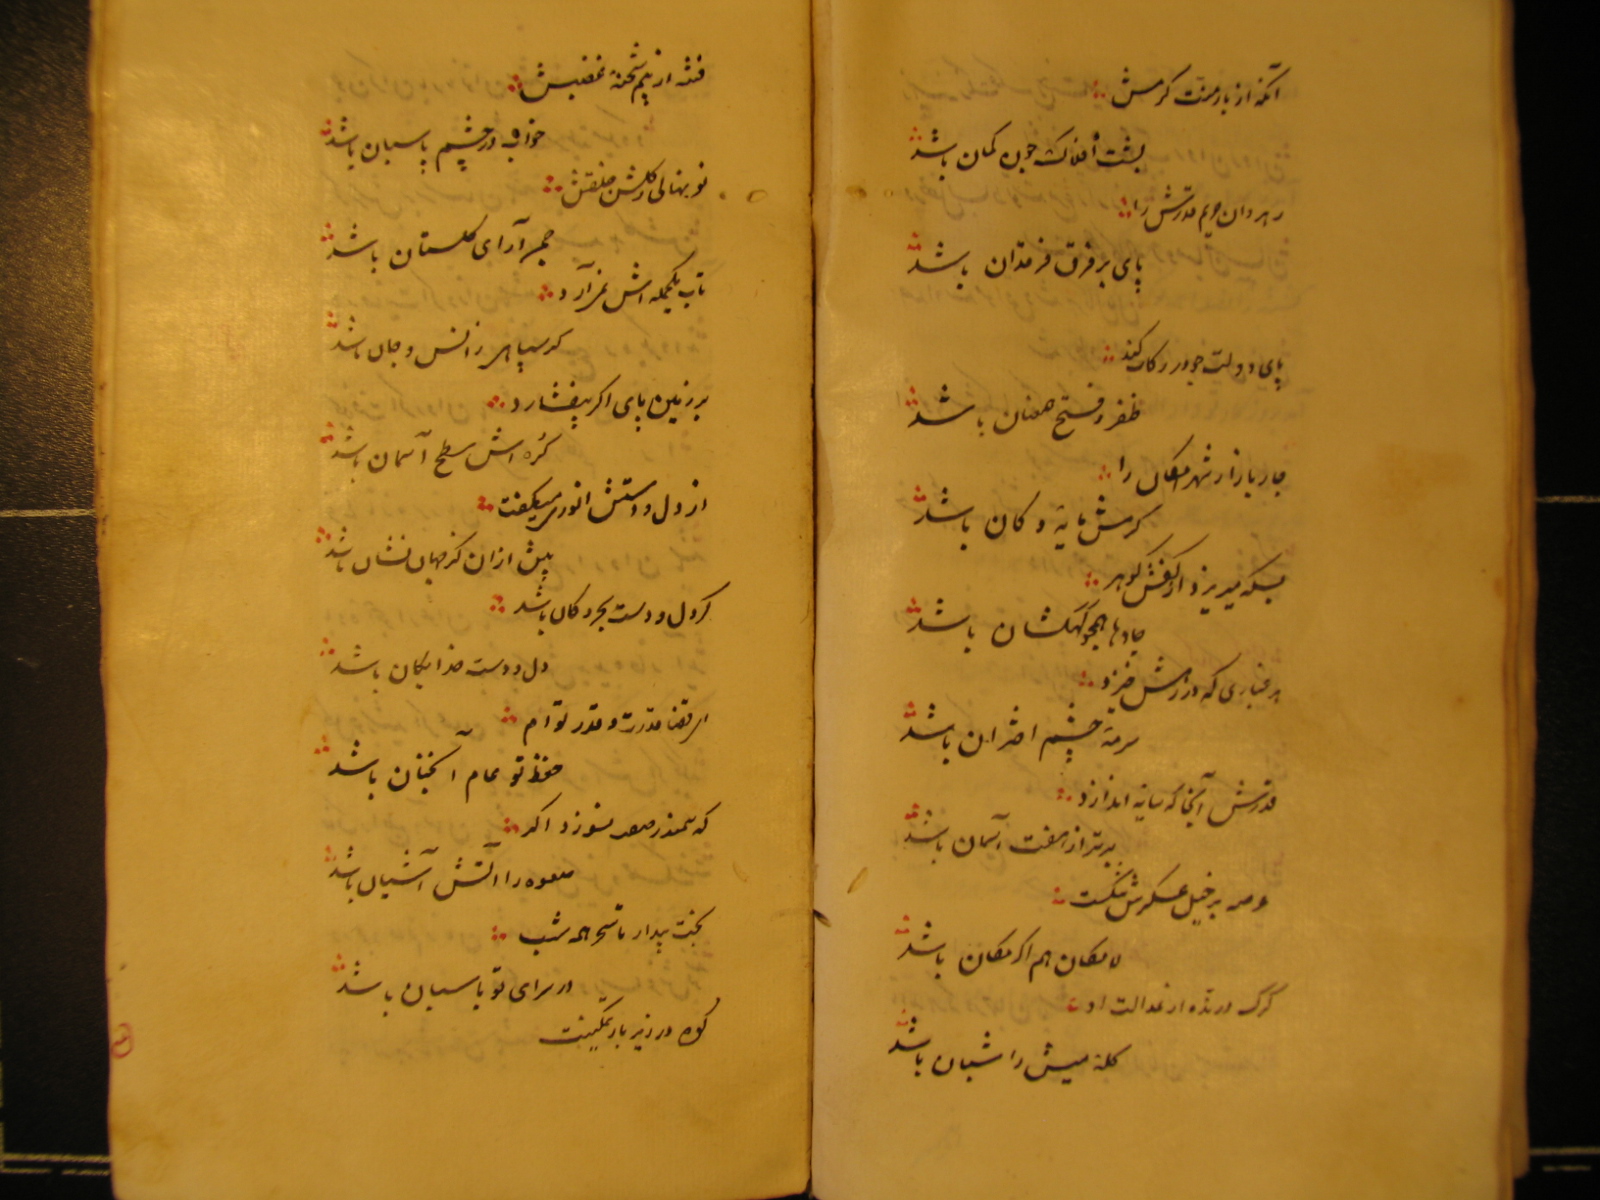 آنکه از بار منت کرمش
پشت افلاک چون کمان باشد
رهروان حریم قدرش را
پای بر فرق فرقدان باشد
پای دولت چو در رکاب کند
ظفر و فتح همعنان باشد
چار بازار شهر امکان را
کرمش مایه و کان باشد
بسکه میریزد از کفش گوهر
جادها همچو کهکشان باشد
هر غباری که در رهش خیزد
سرمه چشم اختران باشد
قدرش آنجا که سایه اندازد
برتر از هفت آسمان باشد
عرصه بر خیل عسکرش تنگست
لامکان هم اگر مکان باشد
گرگ درنده از عدالت او
گله میش را شبان باشد
فتنه از بیم شحنه غضبش
خواب در چشم پاسبان باشد
نو نهالی ز گلشن خلقش
چمن آرای گلستان باشد
تاب یکحمله اش نمی آرد
گر سپاهی ز انس و جان باشد
بر زمین پای اگر بیفشارد
کره اش سطح آسمان باشد
از دل و دستش انوری میگفت
پیش از آن کز جهان نشان باشد
گر دل و دست بحر و کان باشد
دل و دست خدایگان باشد
ای قضا قدرت و قدر توام
حفظ تو عام آنچنان باشد
که سمندر صفت نسوزد اگر
صعوه را آتش آشیان باشد
بخت بیدار تا سحر همه شب
در سرای تو پاسبان باشد
کوه در زیر بار تمکینت